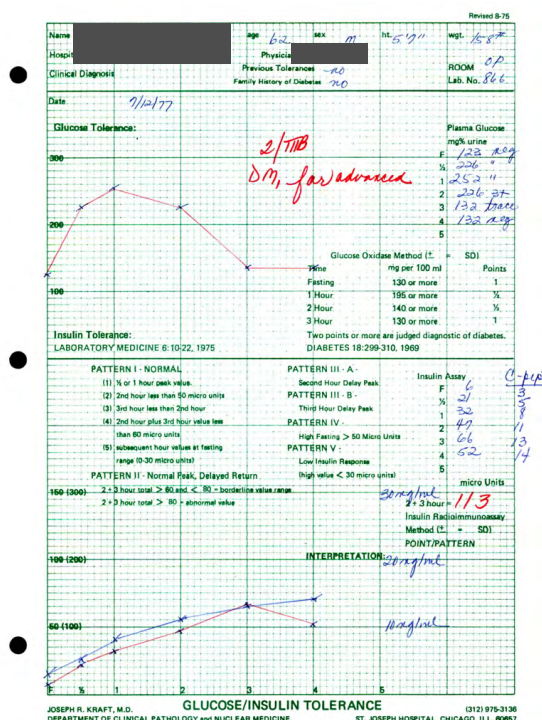 Revised 8-75
Name age 62 sex M ht. 5'7" wgt. 158#
Hospit Physicia ROOM OP
Clinical Diagnosis Previous Tolerances no
Family History of Diabetes no Lab. No. 866
Date 7/12/77
Glucose Tolerance: Plasma Glucose
mg% urine
300 2/IIIB F 123 neg
DM, far advanced ½ 226 "
1 252 "
2 226 3+
200 3 132 trace
4 132 neg
5
Glucose Oxidase Method (± = SD)
Time mg per 100 ml Points
Fasting 130 or more 1
100 1 Hour 195 or more ½
2 Hour 140 or more ½
3 Hour 130 or more 1
Insulin Tolerance: Two points or more are judged diagnostic of diabetes.
LABORATORY MEDICINE 6:10-22, 1975 DIABETES 18:299-310, 1969
PATTERN I - NORMAL
(1) ½ or 1 hour peak value.
(2) 2nd hour less than 50 micro units
(3) 3rd hour less than 2nd hour
(4) 2nd hour plus 3rd hour value less
than 60 micro units
(5) subsequent hour values at fasting
range (0-30 micro units)
PATTERN II - Normal Peak, Delayed Return
2 + 3 hour total > 60 and < 80 = borderline value range
2 + 3 hour total > 80 = abnormal value
PATTERN III - A -
Second Hour Delay Peak
PATTERN III - B -
Third Hour Delay Peak
PATTERN IV -
High Fasting > 50 Micro Units
PATTERN V -
Low Insulin Response
(high value < 30 micro units)
Insulin Assay C-pep
F 6 3
½ 21 5
1 32 8
2 47 11
3 66 13
4 52 14
5
micro Units
150 (300) 30 ng/ml
2 + 3 hour = 113
Insulin Radioimmunoassay
Method (± = SD)
POINT/PATTERN
100 (200) INTERPRETATION: 20 ng/ml
50 (100) 10 ng/ml
F ½ 1 2 3 4 5
JOSEPH R. KRAFT, M.D. GLUCOSE/INSULIN TOLERANCE (312) 975-3136
DEPARTMENT OF CLINICAL PATHOLOGY and NUCLEAR MEDICINE ST. JOSEPH HOSPITAL, CHICAGO, ILL. 60657